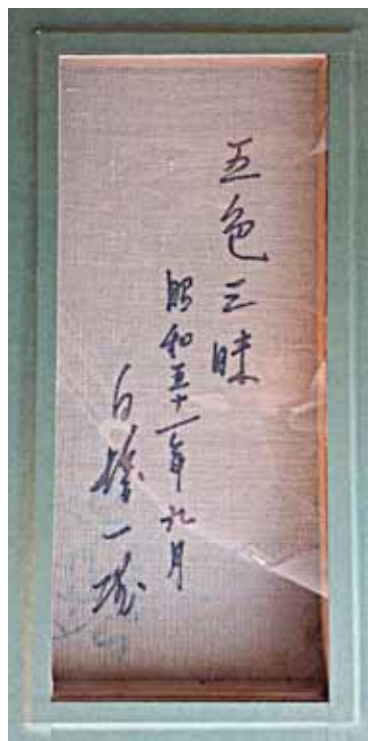 五色三昧
昭和五十一年九月
白髪一雄